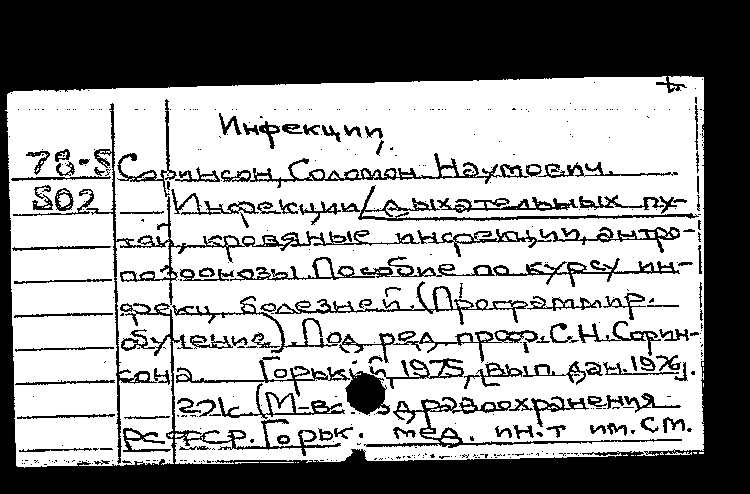 Инфекции,
78-5 Соринсон, Соломон Наумович.
502 Инфекции дыхательных пу-
тей, кровяные инфекции, антро-
позоонозы. Пособие по курсу ин-
фекц. болезней. (Программир.
обучение). Под ред. проф. С.Н. Сорин-
сона. Горький, 1975, [вып. дан. 1976].
221с. (М-во здравоохранения
РСФСР. Горьк. мед. ин-т им. С.М.